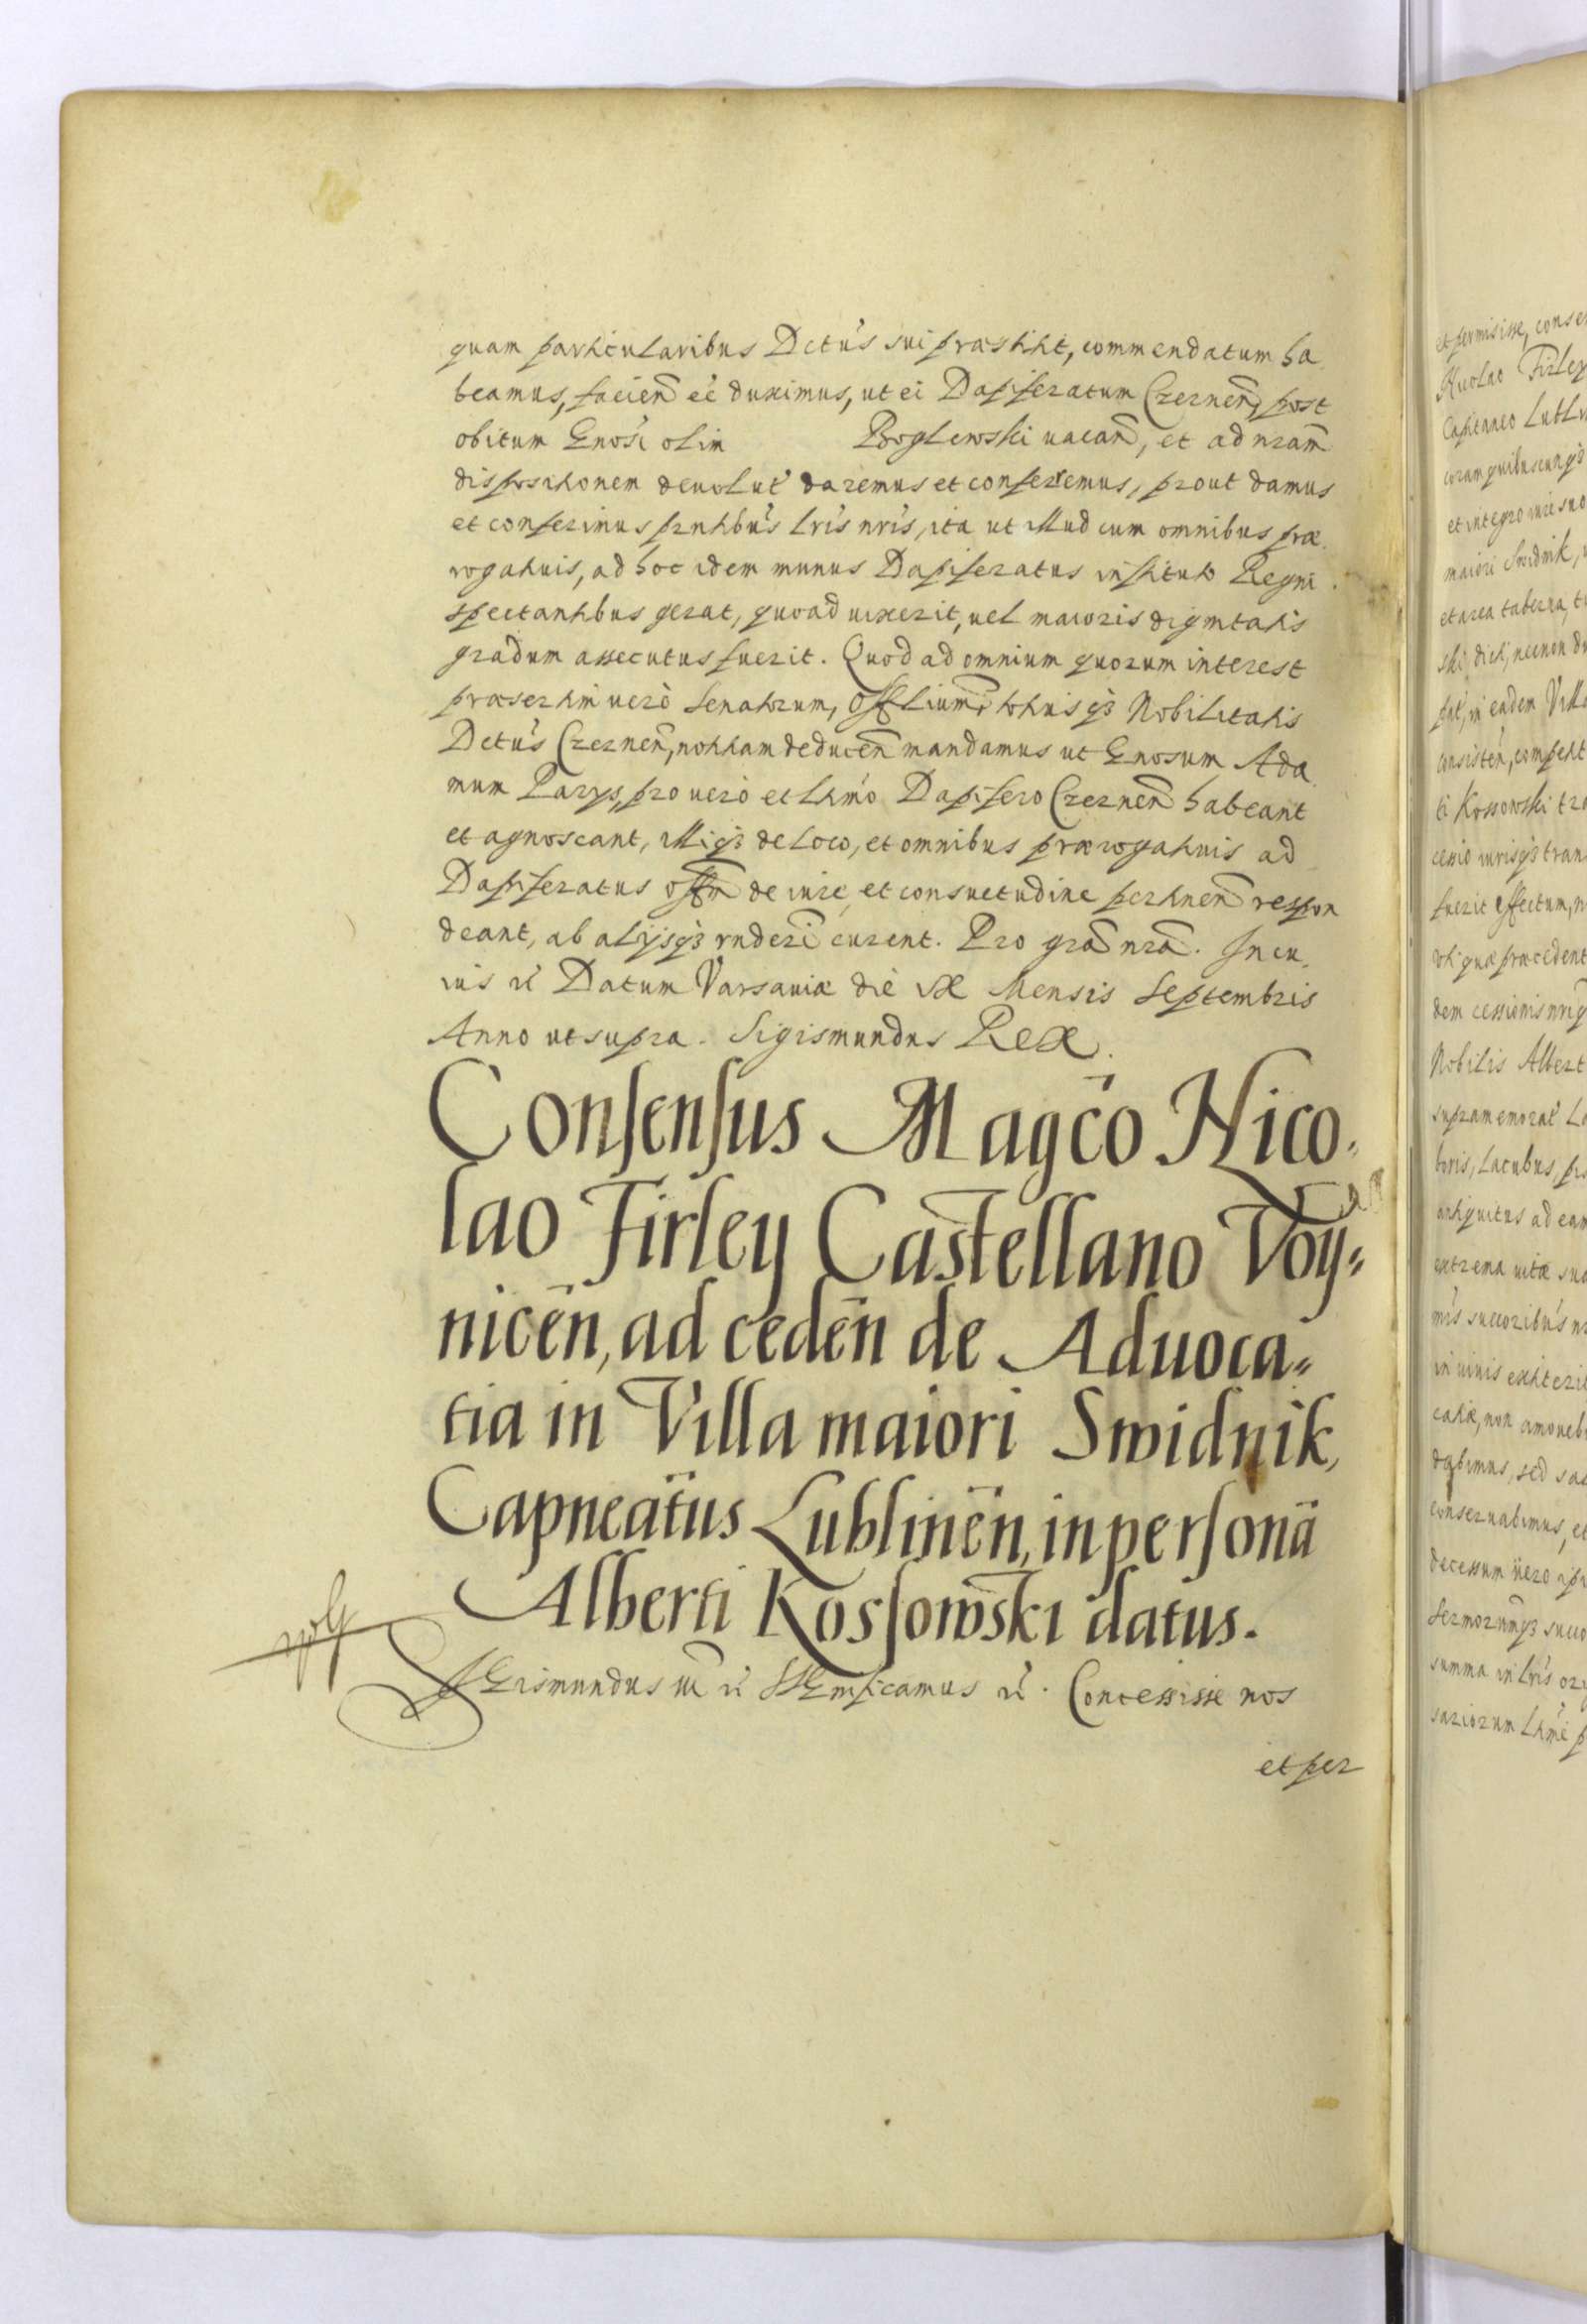 quam particularibus Dctus sui præstitit, commendatum ha
beamus, facien̄ eē duximus, ut ei Dapiferatum Czernen̄, post
obitum Gnosi olim Boglewski vacan̄, et ad nram̄
dispositionem devolut daremus et conferremus, prout damus
et conferimus pntibus lris nris, ita ut illud cum omnibus præ
rogativis, ad hoc idem munus Dapiferatus instituto Regni
spectantibus gerat, quoad vixerit, vel maioris dignitatis
gradum assecutus fuerit. Quod ad omnium quorum interest
præsertim verò Senatorum, Offlium, totius qȝ Nobilitatis
Dctus Czernen̄, notitiam deducen̄ mandamus ut Gnosum Ada
mum Parys, pro vero et ltimo Dapifero Czernen̄ habeant
et agnoscant, illi qȝ de loco, et omnibus prærogativis ad
Dapiferatus offm de iure, et consuetudine pertinen̄ respon
deant, ab alijsqȝ rnderi curent. Pro gra nra. In cu
ius rè Datum Varsaviæ die IX Mensis Septembris
Anno ut supra. Sigismundus Rex.
Consensus Magco Nico
lao Firley Castellano Voy=
nicen̄, ad ceden̄ de Aduoca=
tia in Villa maiori Swidnik,
Capneatus Lublinen̄, in personā
Alberti Kossowski datus.
Sigismundus III rè Significamus rè. Concessisse nos
et per
et permisisse, conse
Nicolao Firley
Capitaneo Lubli
coram quibuscunqȝ
et integro iure suo
maiori Swidnik,
et area taberna,
ski dict, necnon
in eadem Villa
consisten̄, compet
ti Kossowski
cessio iurisqȝ tran
fuerit effectum,
quæ præcedent
dem cessionis
Nobilis Albert
supramemorat
boris, lacubus,
antiquitus ad eam
extrema vitæ suæ
nris successoribus
in vivis extiterit
catiæ, non amoveb
dabimus, sed
conservabimus, et
decessum vero
Sermorumqȝ succ
summa in lris
sariorum ltime